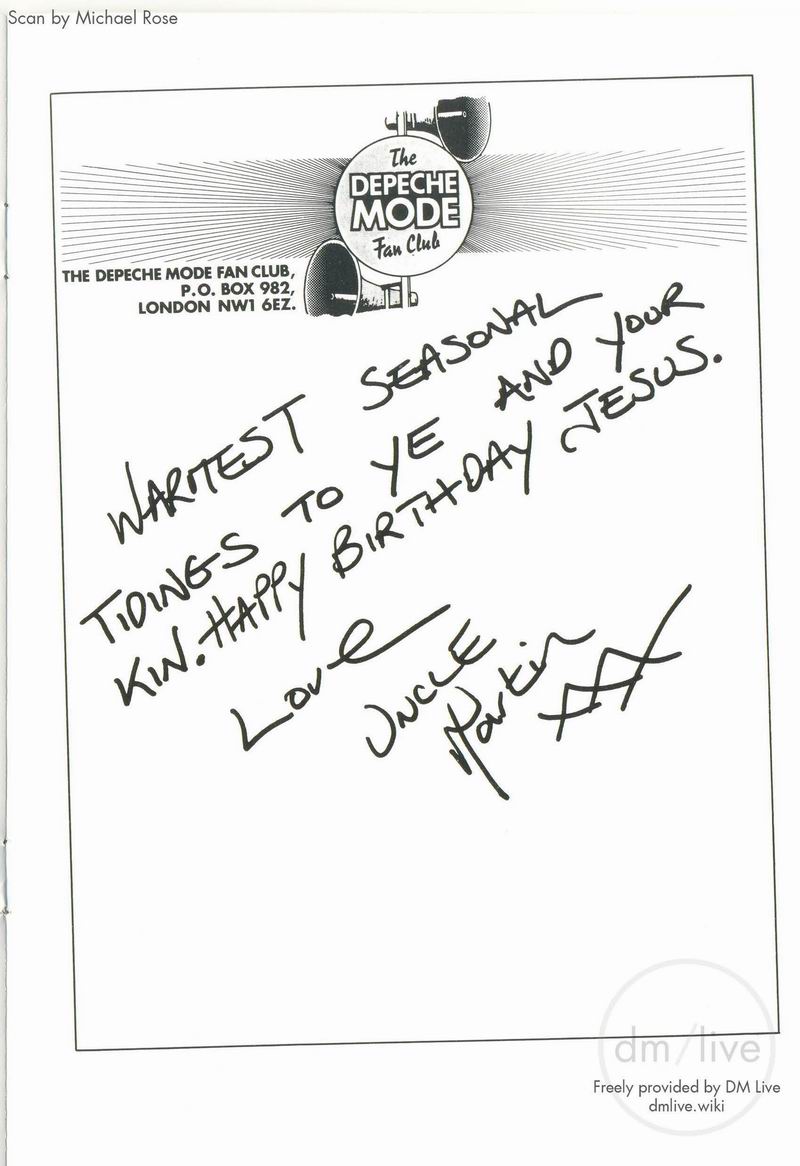 Scan by Michael Rose
The
DEPECHE
MODE
Fan Club
THE DEPECHE MODE FAN CLUB,
P.O. BOX 982,
LONDON NW1 6EZ.
WARMEST SEASONAL
TIDINGS TO YE AND YOUR
KIN. HAPPY BIRTHDAY JESUS.
Love
UNCLE
Martin
XXX
dm/live
Freely provided by DM Live
dmlive.wiki